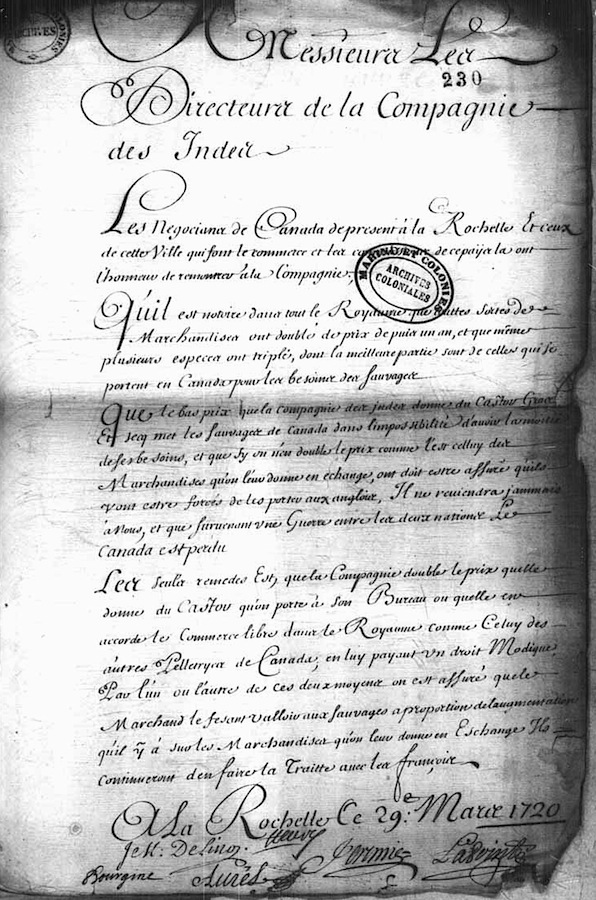 ARCHIVES
COLONIES
A Messieurs Les
230
Directeurs de la Compagnie
des Indes
Les Negocians de Canada de present à la Rochelle Et ceux
de cette Ville qui font le commerce et les de ce païs la ont
l'honneur de remontrer à la Compagnie,
MARINE ET COLONIES
ARCHIVES
COLONIALES
Quil est notoire dans tout le Royaume que toutes sortes de
Marchandises ont doublé de prix depuis un an, et que même
plusieurs especes ont triplé, dont la meilleure partie sont de celles qui se
portent en Canada pour les besoins des Sauvages
Que le bas prix que la Compagnie des Indes donne du Castor Gras
Et secq met les Sauvages de Canada dans limpossibilité d'avoir la moitié
de ses besoins, et que s'y on n'en double le prix comme l'est celluy des
Marchandises qu'on leur donne en échange, on doit estre assuré qu'ils
vont estre forcés de les porter aux anglois, Il ne reviendra jammais
à Nous, et que survenant une Guerre entre les deux nations Le
Canada est perdu
Les seuls remedes Est, que la Compagnie double le prix quelle
donne du Castor qu'on porte à son Bureau ou quelle en
accorde le Commerce libre dans le Royaume comme Celuy des
autres Pelletryes de Canada, en luy payant un droit Modique,
Par l'un ou l'autre de ces deux moyens on est assuré que le
Marchand le fesant valloir aux Sauvages a proportion de laugmentation
qu'il y à sur les Marchandises qu'on leur donne en Eschange Ils
Continueront d'en faire la Traitte avec les françois
A La Rochelle Ce 29.e Mars 1720
Bourgine